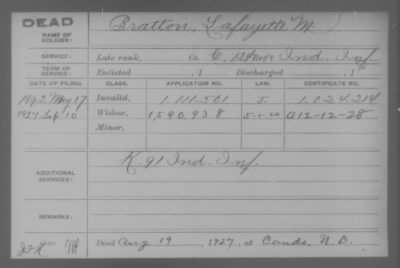 DEAD
NAME OF SOLDIER: Bratton, Lafayette M
SERVICE: Late rank, Co. E, 124 Ind. Inf.
TERM OF SERVICE: Enlisted , 1 Discharged , 1
DATE OF FILING. CLASS. APPLICATION NO. LAW. CERTIFICATE NO.
1892 May 17 Invalid, 1.111.501 1.024.214
1927 Sep 10 Widow, 1,590,938 5-1-20 A12-12-28
Minor,
ADDITIONAL SERVICES: K. 91 Ind. Inf.
REMARKS:
Died Aug 19, 1927, at Cando, N.D.